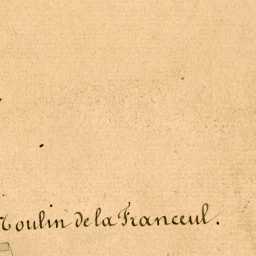 Moulin de la Franceul.